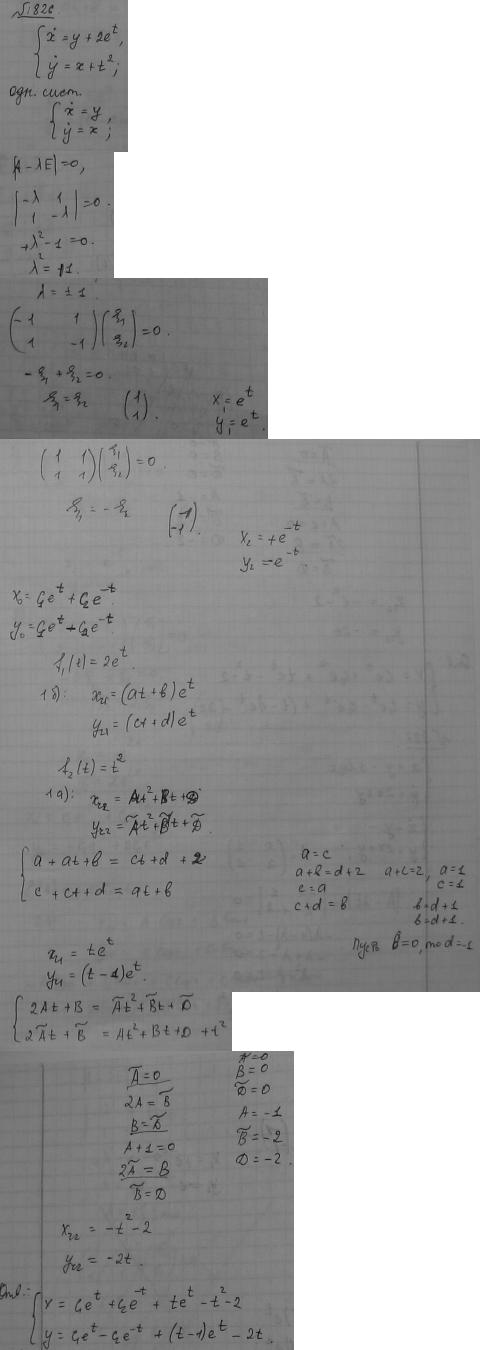 № 826.
{ ẋ = y + 2e^t,
{ ẏ = x + t²;
одн. сист.
{ ẋ = y,
{ ẏ = x;
|A − λE| = 0,
| −λ 1 |
| 1 −λ | = 0.
+λ² − 1 = 0.
λ² = 1.
λ = ± 1.
( −1 1 ) ( ξ₁ )
( 1 −1 ) ( ξ₂ ) = 0.
−ξ₁ + ξ₂ = 0.
ξ₁ = ξ₂ ( 1 1 ). x₁ = e^t
y₁ = e^t.
( 1 1 ) ( ξ₁ )
( 1 1 ) ( ξ₂ ) = 0.
ξ₁ = −ξ₂ ( 1 −1 ).
x₂ = +e^−t
y₂ = −e^−t.
x₀ = C₁e^t + C₂e^−t.
y₀ = C₁e^t − C₂e^−t.
f₁(t) = 2e^t.
1б): x_ч1 = (at + b)e^t
y_ч1 = (ct + d)e^t
f₂(t) = t²
1а): x_ч2 = At² + Bt + D
y_ч2 = Ãt² + B̃t + D̃.
{ a + at + b = ct + d + 2
{ c + ct + d = at + b
a = c
a + b = d + 2 a + c = 2, a = 1
c = a c = 1
c + d = b b = d + 1
b = d + 1.
Пусть b = 0, то d = −1
x_ч1 = te^t
y_ч1 = (t − 1)e^t.
{ 2At + B = Ãt² + B̃t + D̃
{ 2Ãt + B̃ = At² + Bt + D + t²
Ã = 0
2A = B̃
B = D̃
A + 1 = 0
2Ã = B
B̃ = D
Ã = 0
B = 0
D̃ = 0
A = −1
B̃ = −2
D = −2.
x_ч2 = −t² − 2
y_ч2 = −2t.
Отв.:
{ x = C₁e^t + C₂e^−t + te^t − t² − 2
{ y = C₁e^t − C₂e^−t + (t − 1)e^t − 2t.